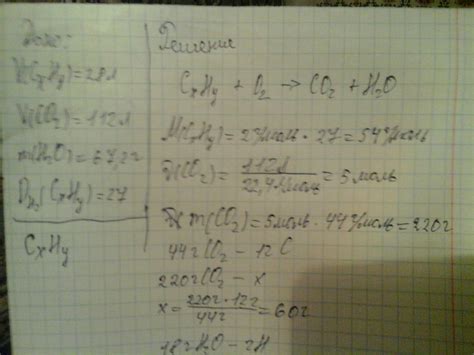 Дано:
V(CxHy)=28л
V(CO2)=112л
m(H2O)=67,2г
DH2(CxHy)=27
CxHy
Решение
CxHy + O2 → CO2 + H2O
M(CxHy)=2г/моль · 27=54г/моль
ν(CO2)=112л/22,4л/моль=5моль
m(CO2)=5моль · 44г/моль=220г
44гCO2 – 12г C
220гCO2 – x
x=220г·12г/44г=60г
18гH2O – 2гH